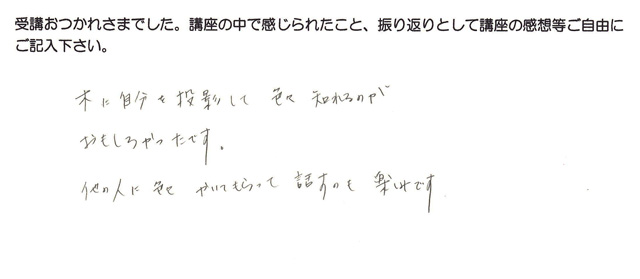 受講おつかれさまでした。講座の中で感じられたこと、振り返りとして講座の感想等ご自由に
ご記入下さい。
木に自分を投影して 色々 知れるのが
おもしろかったです。
他の人に 色々 かいてもらって 話すのも 楽しいです